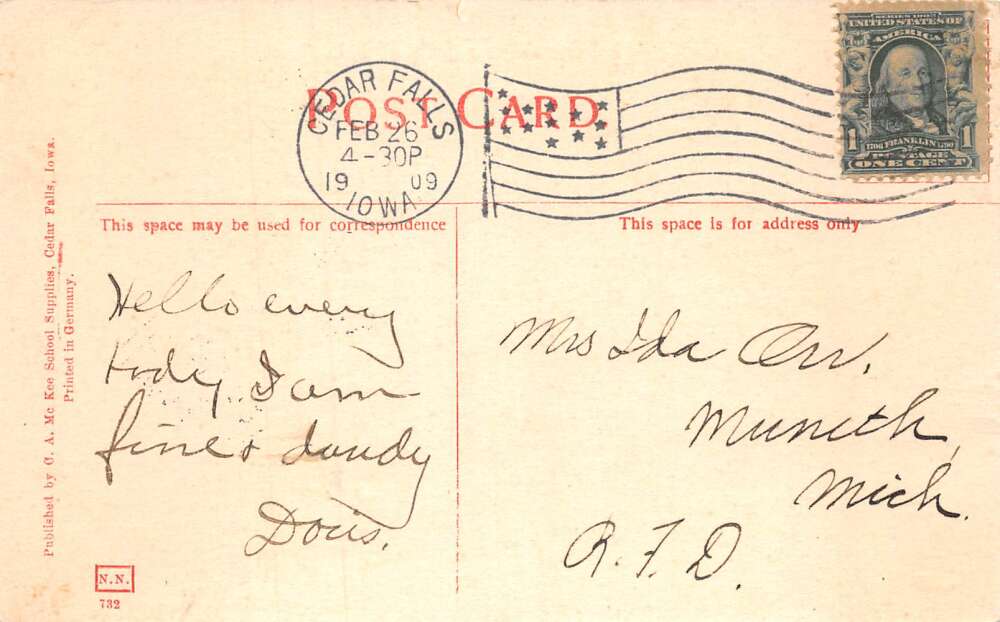 POST CARD
CEDAR FALLS
FEB 26
4-30P
19 09
IOWA
SERIES 1902
UNITED STATES OF
AMERICA
1 1
1706 FRANKLIN 1790
POSTAGE
ONE CENT
This space may be used for correspondence
This space is for address only
Hello every
body. I am
fine & dandy
Doris.
Mrs Ida Orr.
Munith,
Mich.
R.F.D.
Published by C. A. Mc Kee School Supplies, Cedar Falls, Iowa.
Printed in Germany.
N.N.
732